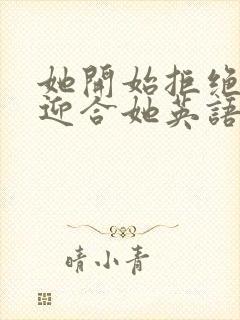 她開始拒绝
迎合她英語
晴小青